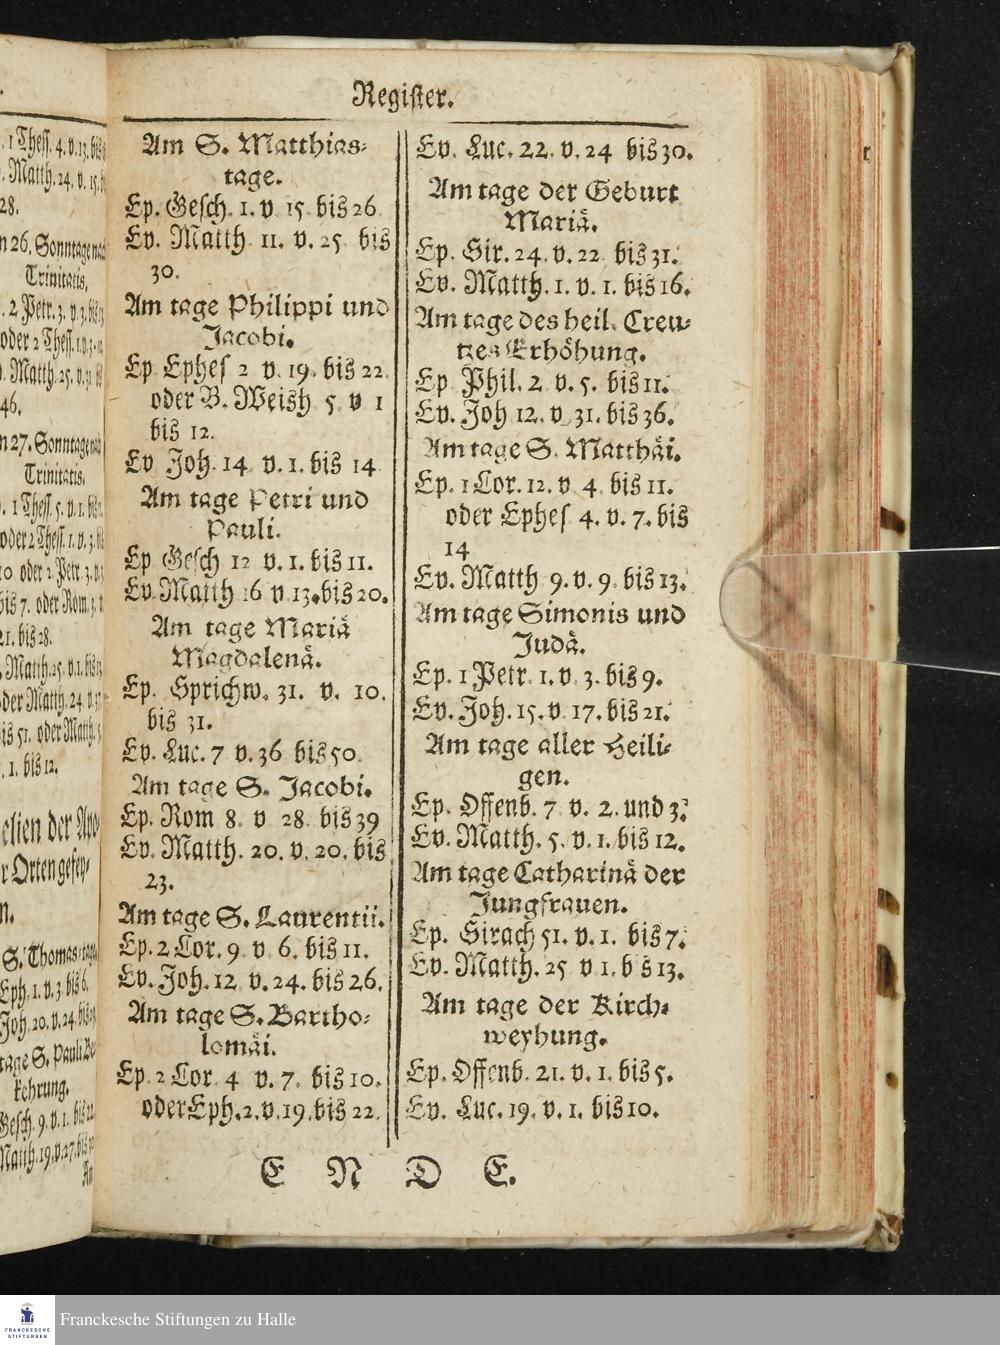 Register.
Am S. Matthias-
tage.
Ep. Gesch. 1. v 15. bis 26
Ev. Matth. 11. v. 25 bis
30.
Am tage Philippi und
Jacobi.
Ep Ephes 2 v. 19. bis 22
oder B. Weish 5 v 1
bis 12.
Ev Joh. 14 v. 1. bis 14
Am tage Petri und
Pauli.
Ep Gesch 12 v. 1. bis 11.
Ev Matth 16 v 13. bis 20.
Am tage Mariä
Magdalenä.
Ep. Sprichw. 31. v. 10.
bis 31.
Ev. Luc. 7 v. 36 bis 50
Am tage S. Jacobi.
Ep. Rom 8. v 28 bis 39
Ev. Matth. 20. v. 20. bis
23.
Am tage S. Laurentii.
Ep. 2 Cor. 9 v 6. bis 11.
Ev. Joh. 12 v. 24. bis 26.
Am tage S. Bartho-
lomäi.
Ep. 2 Cor 4 v. 7. bis 10.
oder Eph. 2. v. 19. bis 22.
Ev. Luc. 22. v. 24 bis 30.
Am tage der Geburt
Mariä.
Ep. Sir. 24. v. 22 bis 31.
Ev. Matth. 1. v. 1. bis 16.
Am tage des heil. Creu-
tzes Erhöhung.
Ep Phil. 2 v. 5. bis 11.
Ev. Joh 12. v 31. bis 36.
Am tage S. Matthäi.
Ep. 1 Cor. 12. v 4. bis 11.
oder Ephes 4. v. 7. bis
14
Ev. Matth 9. v. 9. bis 13.
Am tage Simonis und
Judä.
Ep. 1 Petr. 1. v 3. bis 9.
Ev. Joh. 15. v. 17. bis 21.
Am tage aller Heili-
gen.
Ep. Offenb. 7 v. 2. und 3.
Ev. Matth. 5. v. 1. bis 12.
Am tage Catharinä der
Jungfrauen.
Ep. Sirach 51. v. 1. bis 7.
Ev. Matth. 25 v 1. b s 13.
Am tage der Kirch-
weyhung.
Ep. Offenb. 21. v. 1. bis 5.
Ev. Luc. 19. v. 1. bis 10.
E N D E.
Franckesche Stiftungen zu Halle
FRANCKESCHE
STIFTUNGEN